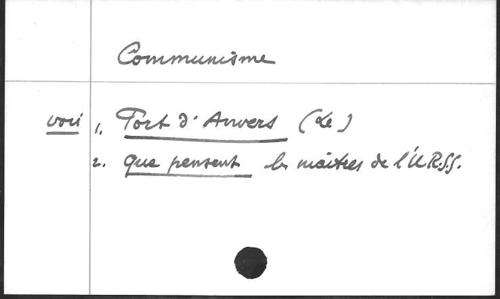 Communisme
voir 1. Port d'Anvers (Le)
2. Que pensent les maîtres de l'U.R.S.S.